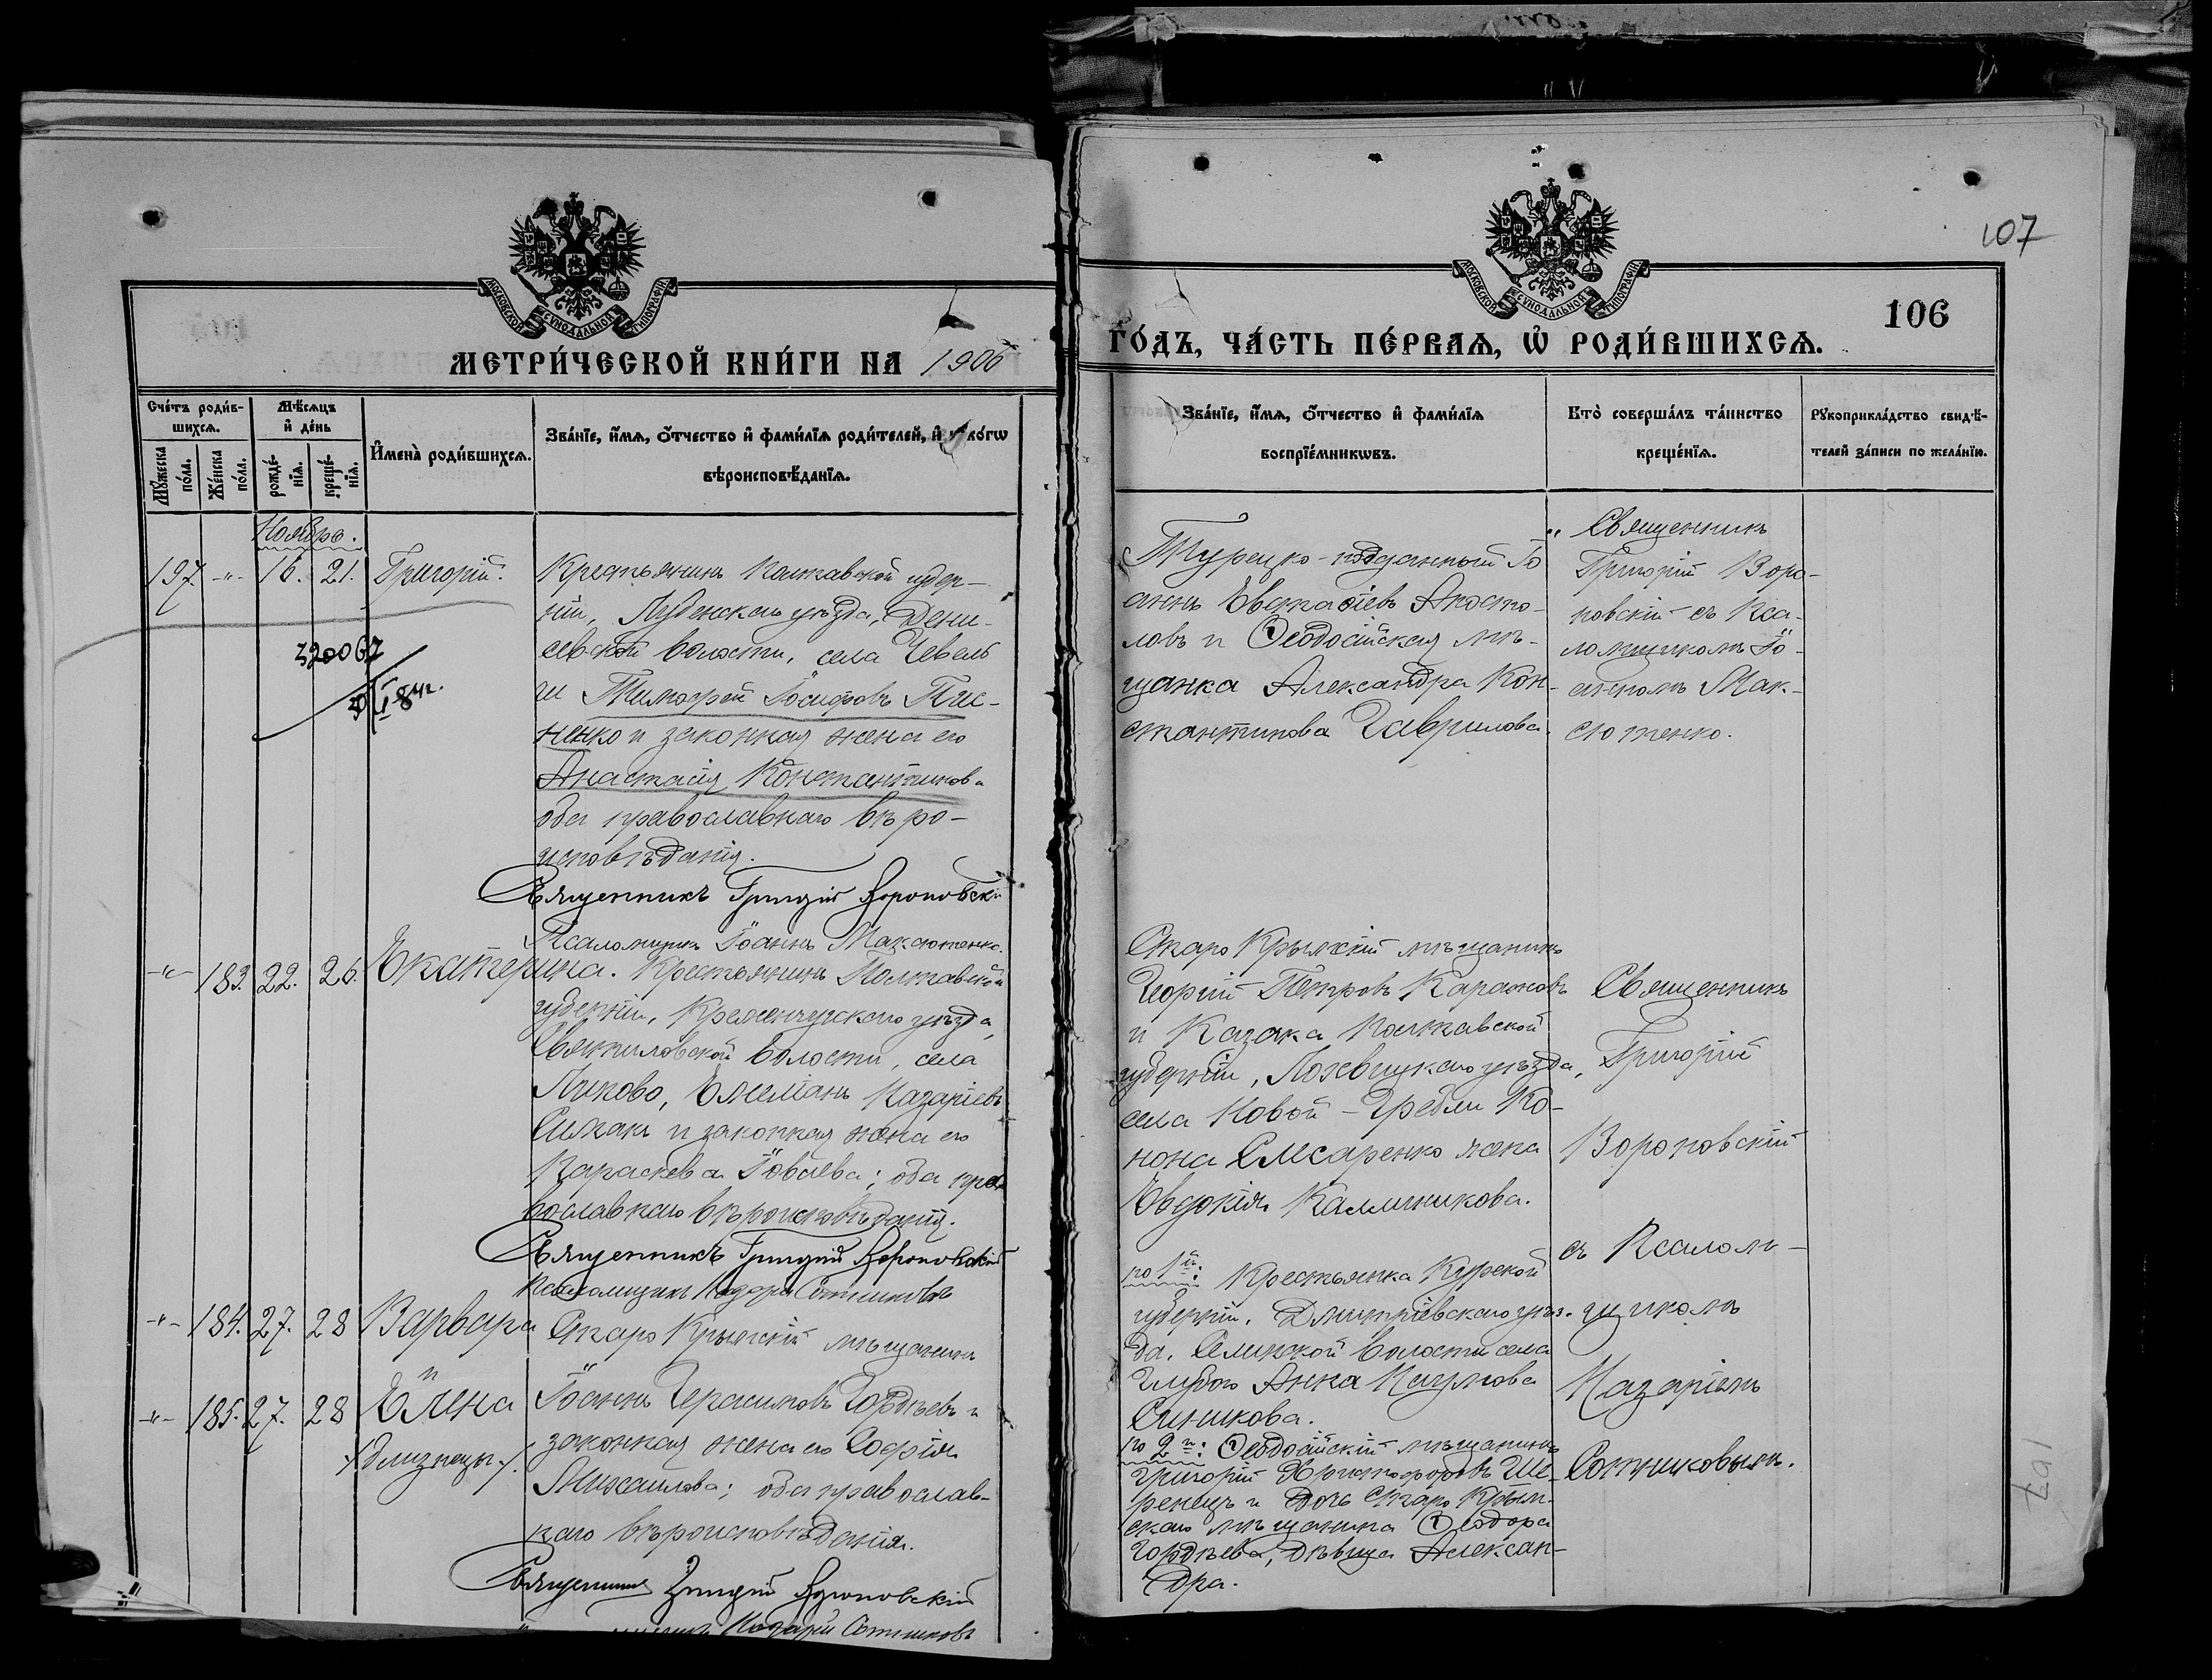 107
106
МОСКОВСКОЙ СѴНОДАЛЬНОЙ ТИПОГРАФІИ
МЕТРИ́ЧЕСКОЙ КНИ́ГИ НА 1906
МОСКОВСКОЙ СѴНОДАЛЬНОЙ ТИПОГРАФІИ
ГО́ДЪ, ЧА́СТЬ ПЕ́РВАѦ, Ѡ҆ РОДИ́ВШИХСѦ.
Сче́тъ роди́в-
шихсѧ.
Мꙋ́жеска по́ла.
Же́нска по́ла.
Мѣ́сѧцъ
и҆ де́нь
рожде́-
нїѧ.
креще́-
нїѧ.
И҆мена̀ роди́вшихсѧ.
Зва́нїе, и҆́мѧ, ѻ҆́тчество и҆ фами́лїѧ роди́телей, и҆ ко́гѡ
вѣроисповѣ́данїѧ.
Зва́нїе, и҆́мѧ, ѻ҆́тчество и҆ фами́лїѧ
воспрїе́мникѡвъ.
Кто̀ соверша́лъ та́инство
креще́нїѧ.
Рꙋкоприкла́дство свидѣ́-
телей за́писи по жела́нїю.
Ноября.
197. -"- 16. 21. Григорій.
Крестьянинъ Полтавской губер-
ніи, Лубенскаго уѣзда, Дени-
севской волости, села
Тимофей Іосифовъ
ненко и законная жена его
Анастасія Константинова
оба православнаго вѣро-
исповѣданія.
Священникъ Григорій Вороновскій
Псаломщикъ Іоаннъ Максютенко.
320067
Турецко-подданный Іо
аннъ Евстафіевъ Апосто-
ловъ и Ѳеодосійская мѣ-
щанка Александра Кон-
стантинова Гаврилова.
Священникъ
Григорій Воро-
новскій съ Пса-
ломщикомъ Іо-
анномъ Мак-
сютенко.
-"- 183. 22. 26. Екатерина.
Крестьянинъ Полтавской
губерніи, Кременчугскаго уѣзда,
Святиловской волости, села
Пыково, Емеліанъ Назаріевъ
Симакъ и законная жена его
Параскева Іовлева; оба пра
вославнаго вѣроисповѣданія.
Священникъ Григорій Вороновскій
Псаломщикъ Назарій Сотниковъ
Старо Крымскій мѣщанинъ
Георгій Петровъ Каражовъ
и Казака Полтавской
губерніи, Лохвицкаго уѣзда,
села Новой-Гребли Ко-
нона Слесаренко жена
Евдокія Каллиникова.
Священникъ
Григорій
Вороновскій
съ Псалом-
щикомъ
Назаріемъ
Сотниковымъ.
-"- 184. 27. 28 Варвара
-"- 185. 27. 28 и Елена
/близнецы/.
Старо Крымскій мѣщанинъ
Іоаннъ Герасимовъ Гордѣевъ и
законная жена его Софія
Михаилова; оба православ-
наго вѣроисповѣданія.
Священникъ Григорій Вороновскій
Назарій Сотниковъ
по 1й: Крестьянка Курской
губерніи, Дмитріевскаго уѣз-
да, Селинской волости села
Анна Наумова
Синикова.
по 2й: Ѳеодосійскій мѣщанинъ
Григорій Христофоровъ Ше-
ренецъ и дочь Старо Крым-
скаго мѣщанина Ѳеодора
Гордѣева, дѣвица Алексан-
дра.